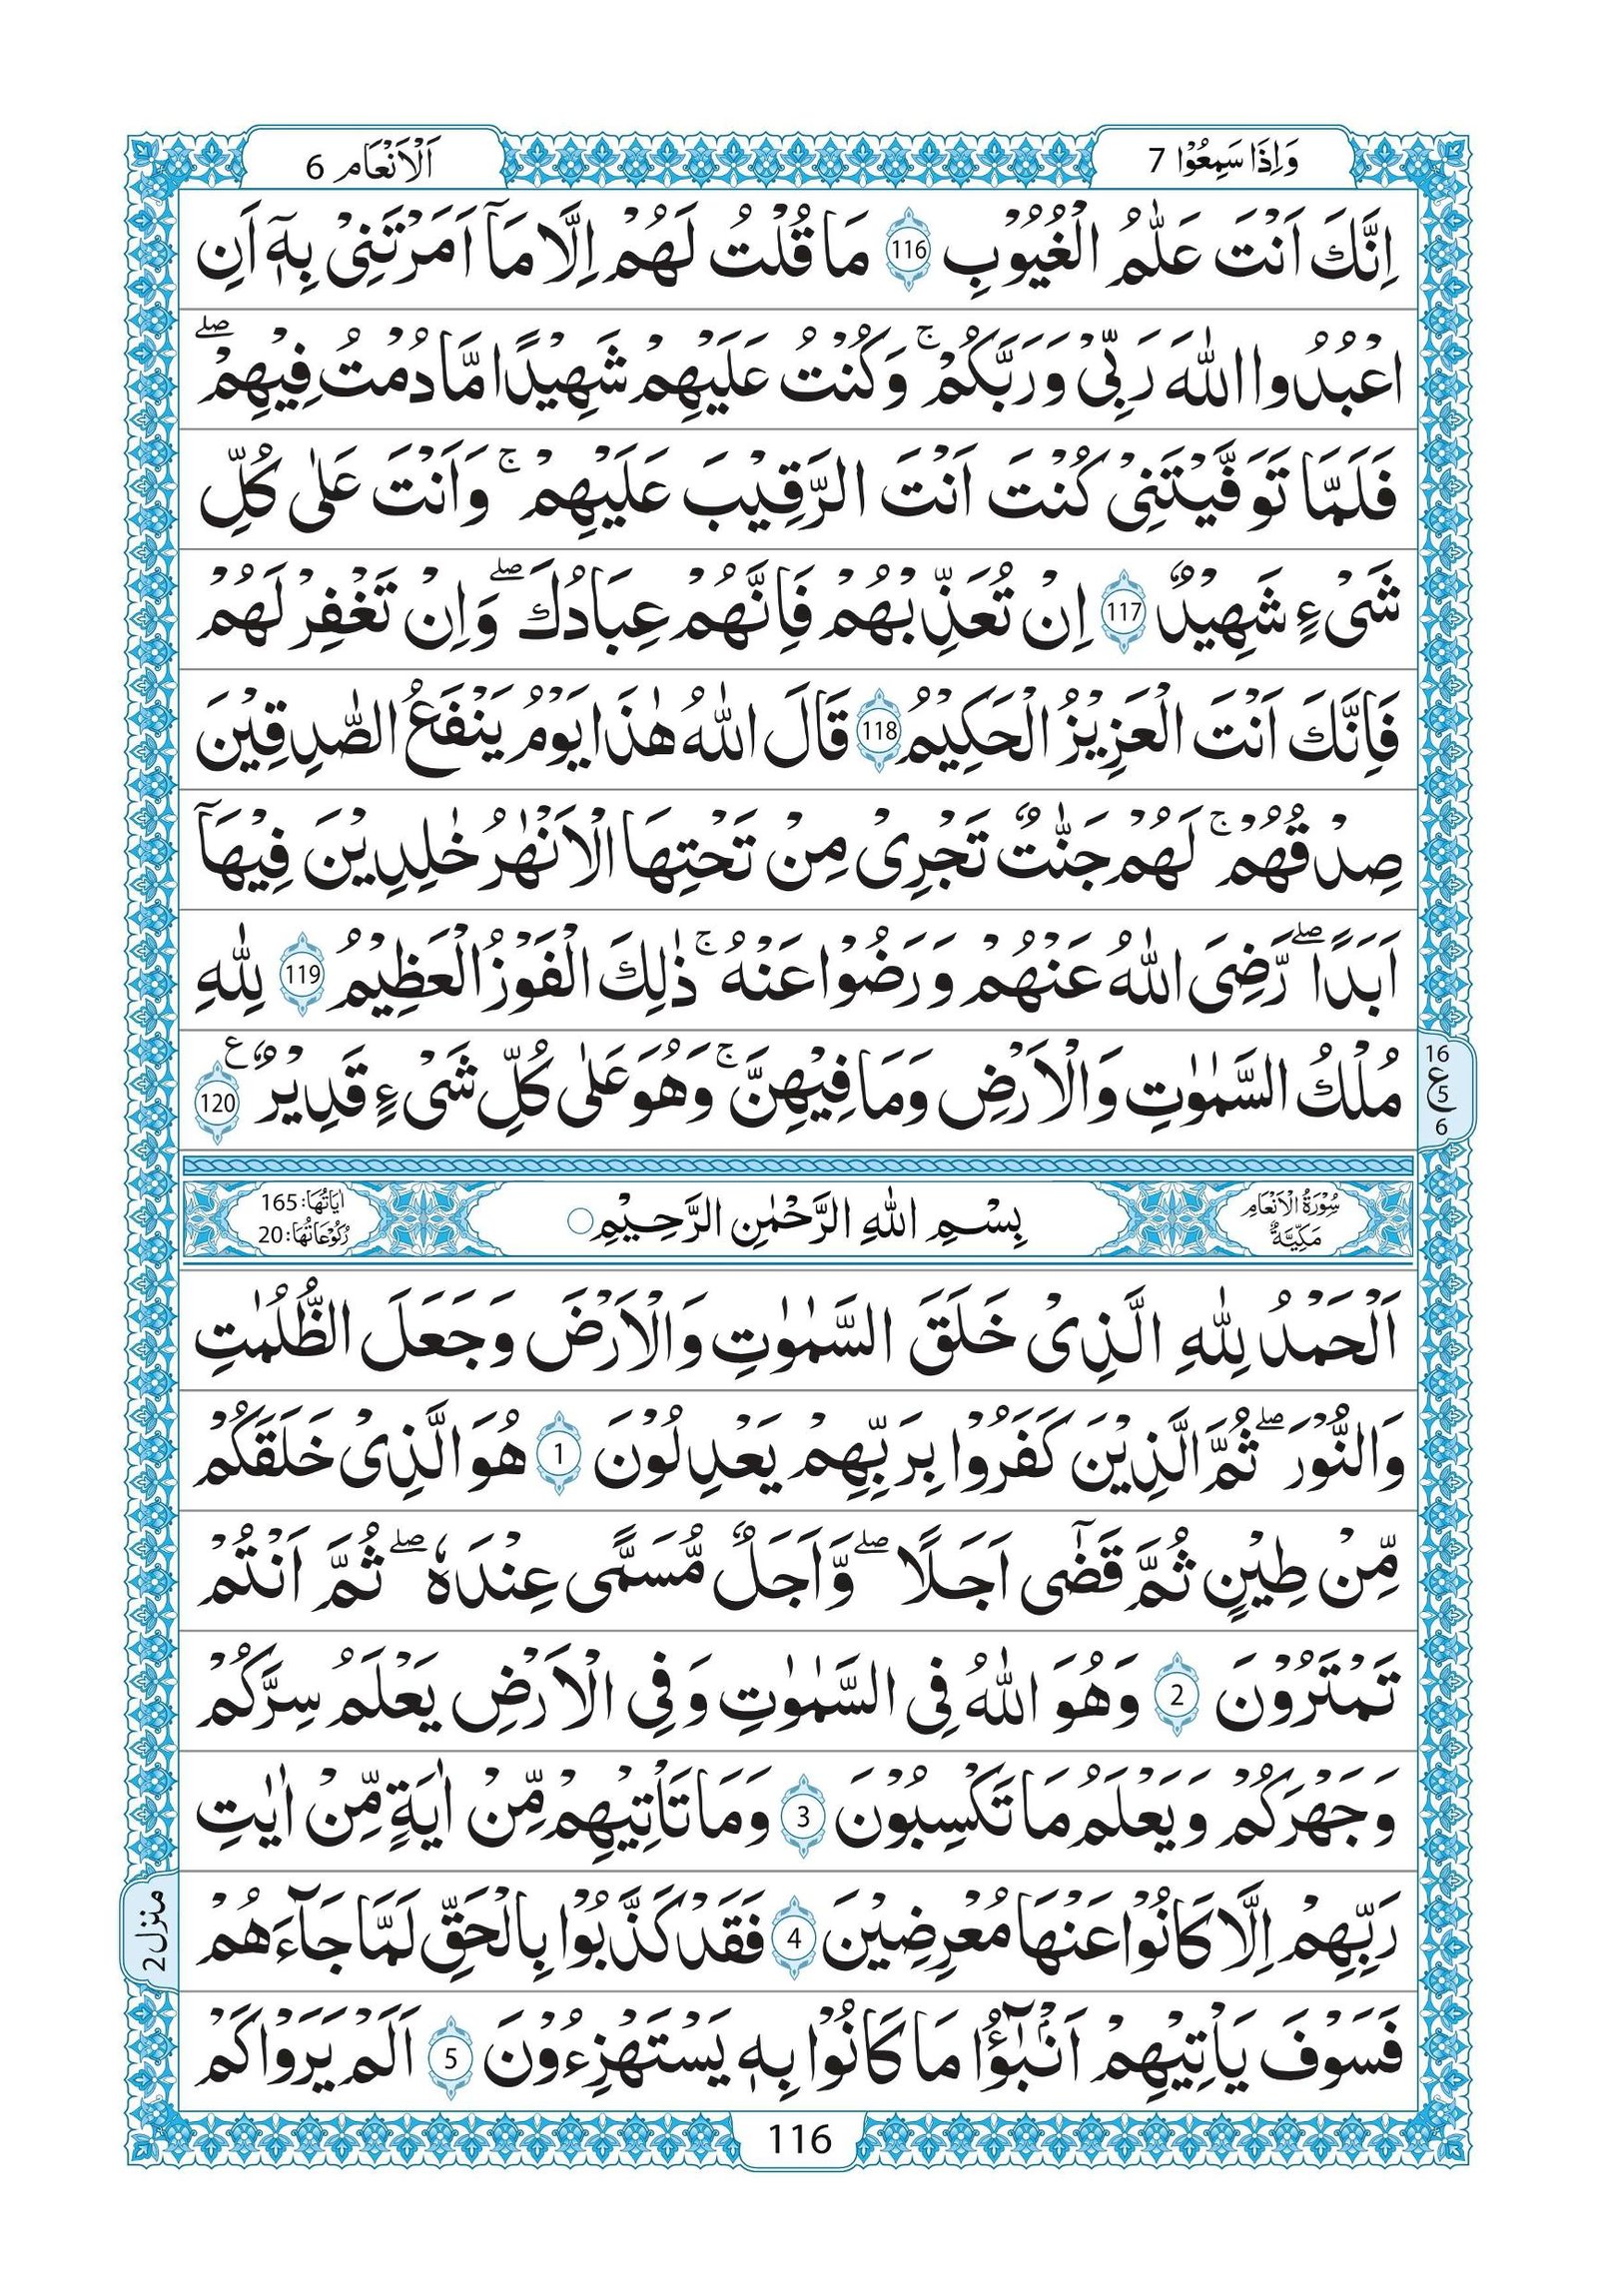 وَاِذَا سَمِعُوْا 7
اَلْاَنْعَام 6
اِنَّكَ اَنْتَ عَلَّامُ الْغُيُوْبِ 116 مَا قُلْتُ لَهُمْ اِلَّا مَاۤ اَمَرْتَنِىْ بِهٖۤ اَنِ
اعْبُدُوا اللّٰهَ رَبِّىْ وَرَبَّكُمْ ۚ وَكُنْتُ عَلَيْهِمْ شَهِيْدًا مَّا دُمْتُ فِيْهِمْ ۖ
فَلَمَّا تَوَفَّيْتَنِىْ كُنْتَ اَنْتَ الرَّقِيْبَ عَلَيْهِمْ ۚ وَاَنْتَ عَلٰى كُلِّ
شَىْءٍ شَهِيْدٌ 117 اِنْ تُعَذِّبْهُمْ فَاِنَّهُمْ عِبَادُكَ ۖ وَاِنْ تَغْفِرْ لَهُمْ
فَاِنَّكَ اَنْتَ الْعَزِيْزُ الْحَكِيْمُ 118 قَالَ اللّٰهُ هٰذَا يَوْمُ يَنْفَعُ الصّٰدِقِيْنَ
صِدْقُهُمْ ۚ لَهُمْ جَنّٰتٌ تَجْرِىْ مِنْ تَحْتِهَا الْاَنْهٰرُ خٰلِدِيْنَ فِيْهَاۤ
اَبَدًا ۖ رَّضِىَ اللّٰهُ عَنْهُمْ وَرَضُوْا عَنْهُ ۚ ذٰلِكَ الْفَوْزُ الْعَظِيْمُ 119 لِلّٰهِ
مُلْكُ السَّمٰوٰتِ وَالْاَرْضِ وَمَا فِيْهِنَّ ۚ وَهُوَ عَلٰى كُلِّ شَىْءٍ قَدِيْرٌ ع 120
16
ع 5
6
سُوْرَةُ الْاَنْعَامِ
مَكِّيَّةٌ
بِسْمِ اللّٰهِ الرَّحْمٰنِ الرَّحِيْمِ ○
اٰيَاتُهَا: 165
رُكُوْعَاتُهَا: 20
اَلْحَمْدُ لِلّٰهِ الَّذِىْ خَلَقَ السَّمٰوٰتِ وَالْاَرْضَ وَجَعَلَ الظُّلُمٰتِ
وَالنُّوْرَ ۖ ثُمَّ الَّذِيْنَ كَفَرُوْا بِرَبِّهِمْ يَعْدِلُوْنَ 1 هُوَ الَّذِىْ خَلَقَكُمْ
مِّنْ طِيْنٍ ثُمَّ قَضٰۤى اَجَلًا ۖ وَّاَجَلٌ مُّسَمًّى عِنْدَهٗ ۖ ثُمَّ اَنْتُمْ
تَمْتَرُوْنَ 2 وَهُوَ اللّٰهُ فِى السَّمٰوٰتِ وَفِى الْاَرْضِ يَعْلَمُ سِرَّكُمْ
وَجَهْرَكُمْ وَيَعْلَمُ مَا تَكْسِبُوْنَ 3 وَمَا تَاْتِيْهِمْ مِّنْ اٰيَةٍ مِّنْ اٰيٰتِ
رَبِّهِمْ اِلَّا كَانُوْا عَنْهَا مُعْرِضِيْنَ 4 فَقَدْ كَذَّبُوْا بِالْحَقِّ لَمَّا جَآءَهُمْ
فَسَوْفَ يَاْتِيْهِمْ اَنْۢبٰٓؤُا مَا كَانُوْا بِهٖ يَسْتَهْزِءُوْنَ 5 اَلَمْ يَرَوْا كَمْ
منزل 2
116